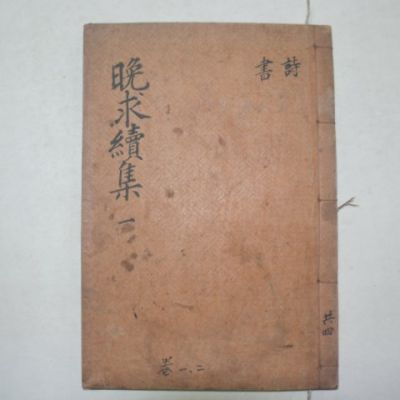 詩
書
晩求續集 一
共四
卷一、二